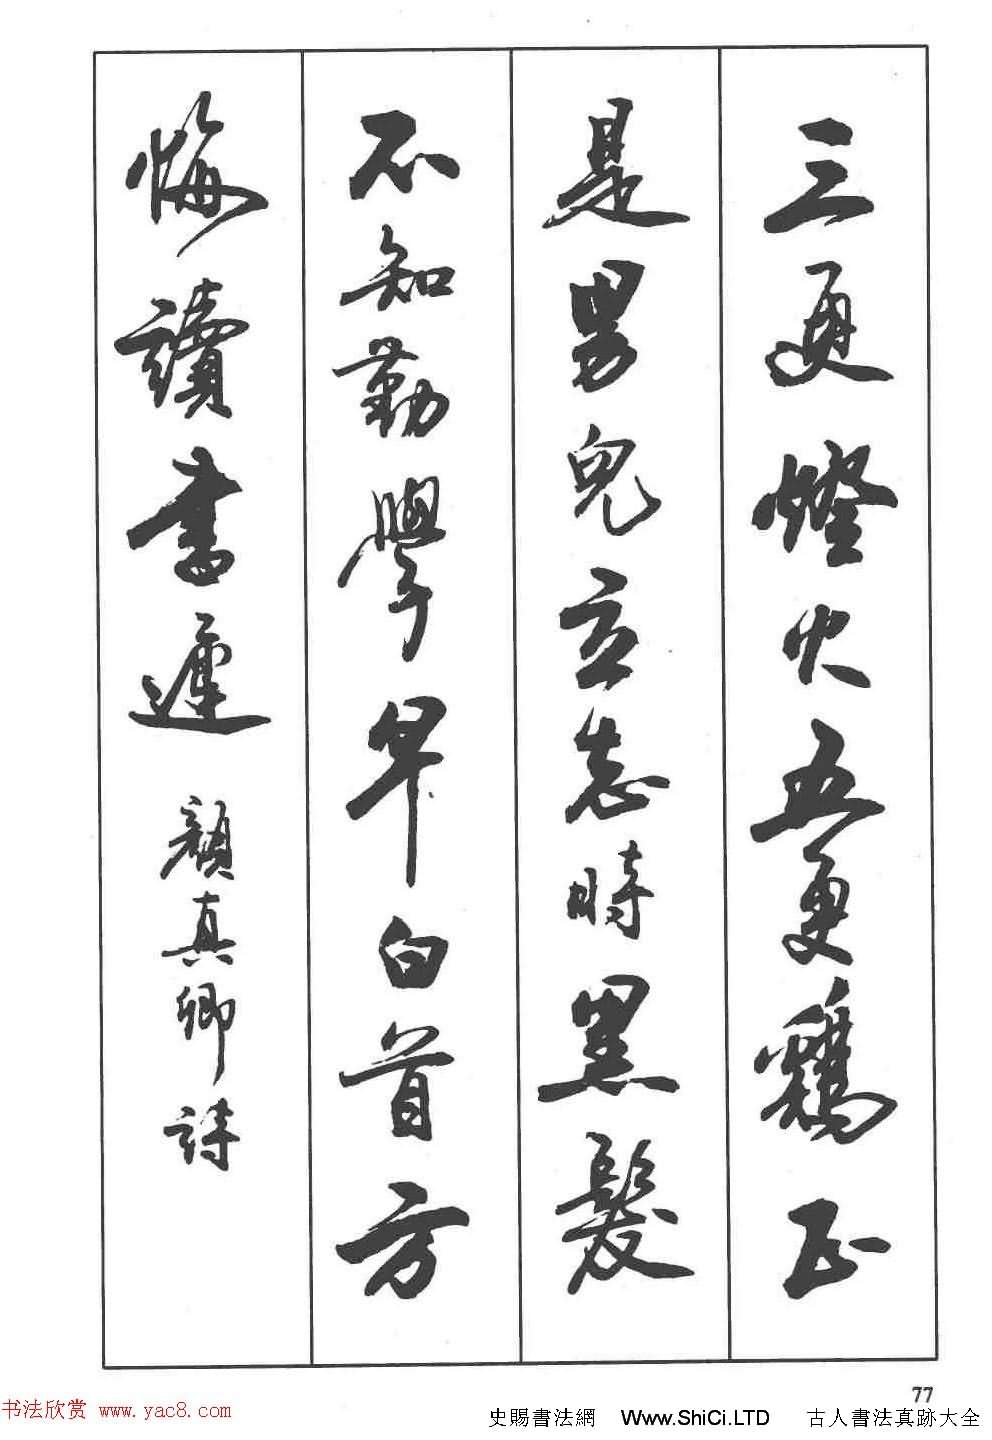 三更燈火五更鷄正
是男兒立志時黑髮
不知勤學早白首方
悔讀書遲 顏真卿詩
77
书法欣赏 www.yac8.com
史賜書法網 Www.ShiCi.LTD 古人書法真跡大全